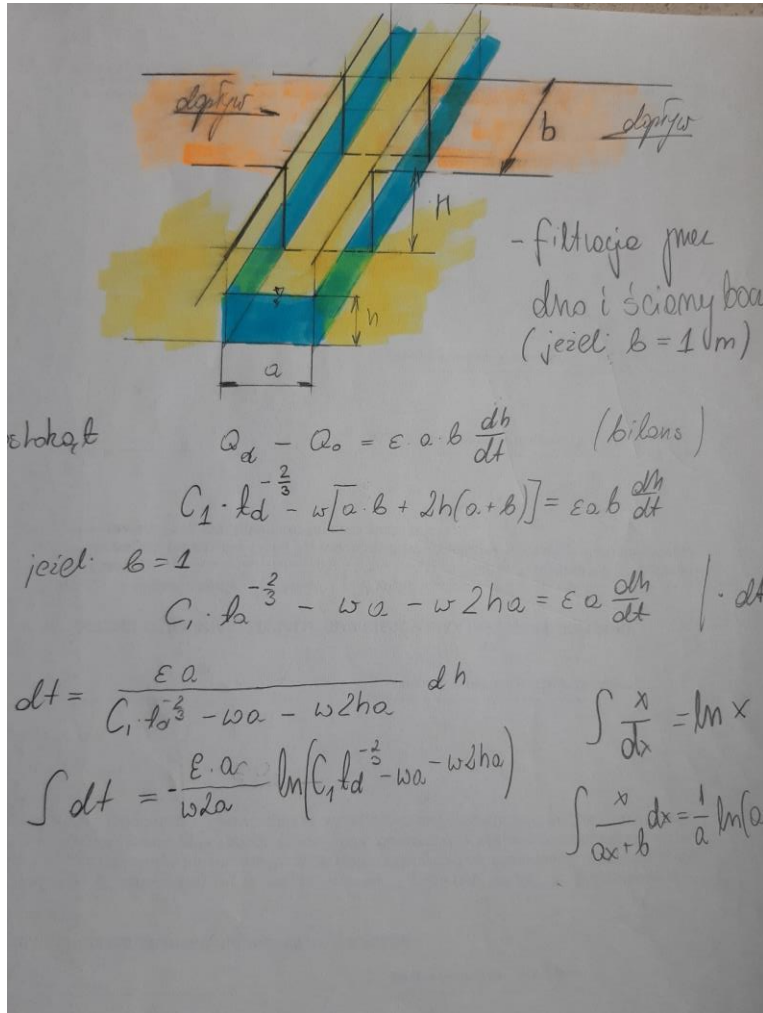 dopływ
dopływ
b
H
h
a
- filtracja przez
dno i ściany boc
(jeżeli b = 1 m)
stokąt
Q_d - Q_o = ε a·b dh/dt (bilans)
C_1 · t_d^{-2/3} - w[a·b + 2h(a+b)] = ε a b dh/dt
jeżeli b = 1
C_1 · t_d^{-2/3} - wa - w2ha = ε a dh/dt | · dt
dt = ε a / (C_1 t_d^{-2/3} - wa - w2ha) dh
∫ x/dx = ln x
∫ dt = - ε·a / w2a ln(C_1 t_d^{-2/3} - wa - w2ha)
∫ x/(ax+b) dx = 1/a ln(a